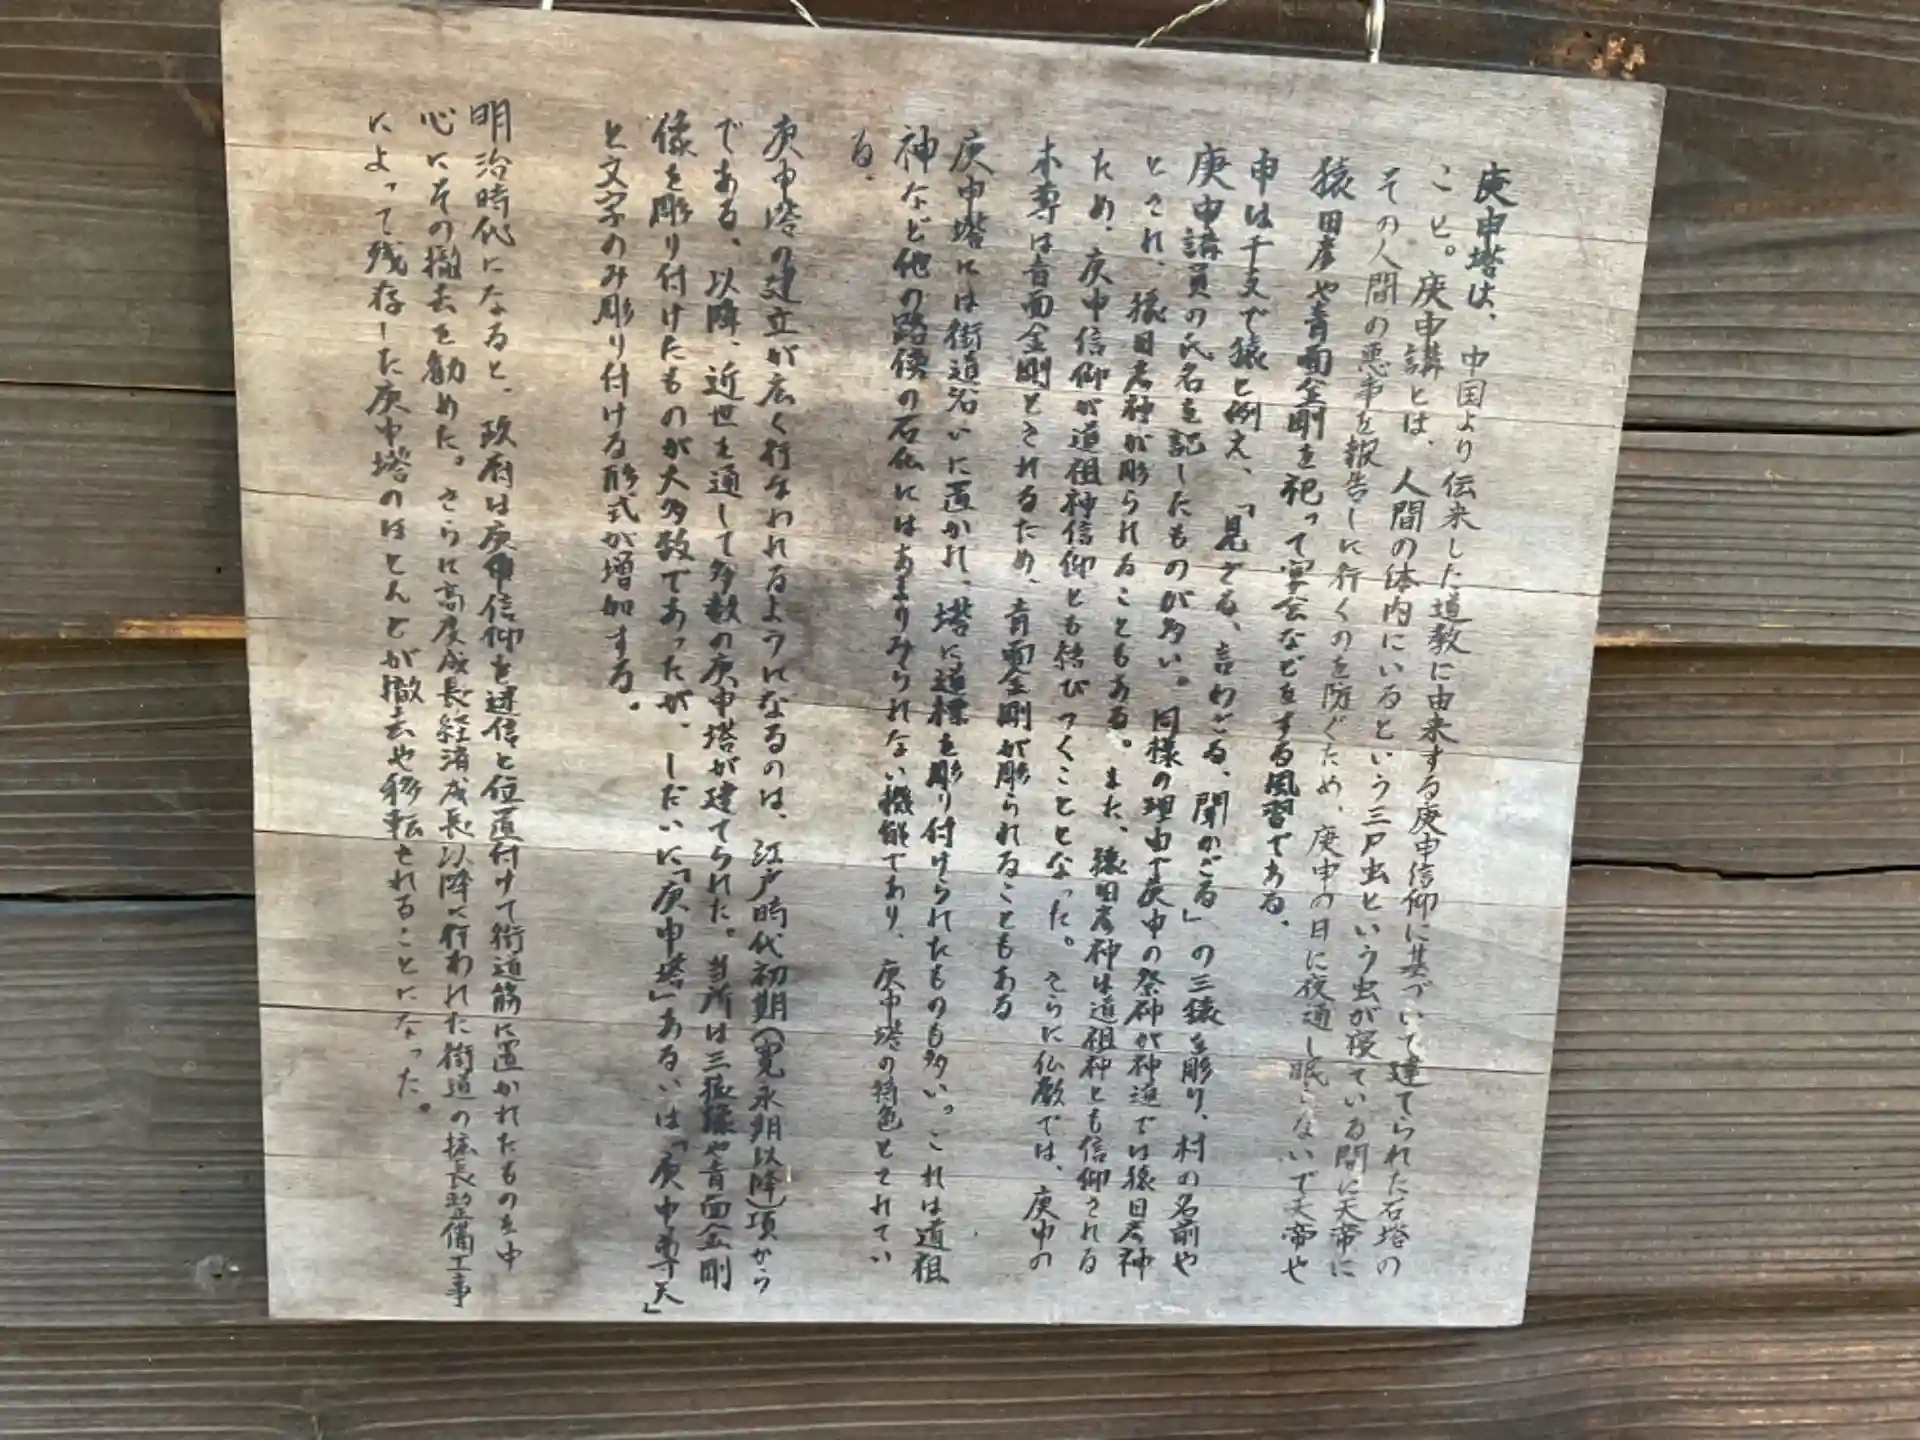 庚申塔は、中国より伝来した道教に由来する庚申信仰に基づいて建てられた石塔の
こと。庚申講とは、人間の体内にいるという三尸虫という虫が寝ている間に天帝に
その人間の悪事を報告しに行くのを防ぐため、庚申の日に夜通し眠らないで天帝や
猿田彦や青面金剛を祀って宴会などをする風習である。
申は干支で猿と例え、「見ざる、言わざる、聞かざる」の三猿を彫り、村の名前や
庚申講員の氏名を記したものが多い。同様の理由で庚申の祭神が神道では猿田彦神
とされ、猿田彦神が彫られることもある。また、猿田彦神は道祖神とも信仰される
ため、庚申信仰が道祖神信仰とも結びつくこととなった。さらに仏教では、庚申の
本尊は青面金剛とされるため、青面金剛が彫られることもある
庚申塔には街道沿いに置かれ、塔に道標を彫り付けられたものも多い。これは道祖
神など他の路傍の石仏にはあまりみられない機能であり、庚申塔の特色とされてい
る.
庚申塔の建立が広く行なわれるようになるのは、江戸時代初期(寛永期以降)頃から
である、以降、近世を通して多数の庚申塔が建てられた。当所は三猿像や青面金剛
像を彫り付けたものが大多数であったが、しだいに「庚申塔」あるいは「庚申尊天」
と文字のみ彫り付ける形式が増加する。
明治時代になると、政府は庚申信仰を迷信と位置付けて街道筋に置かれたものを中
心にその撤去を勧めた。さらに高度成長経済成長以降に行われた街道の拡長整備工事
によって残存した庚申塔のほとんどが撤去や移転されることになった。